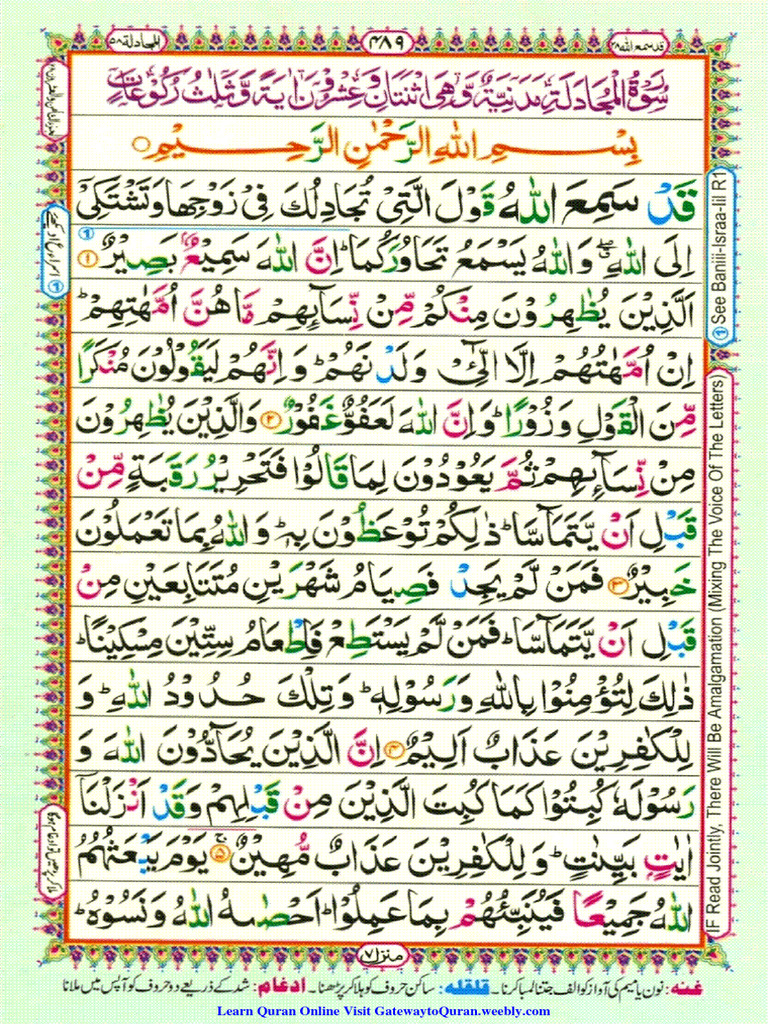 قد سمع الله ٢٨
٤٨٩
المجادلة ٥٨
سُوْرَةُ الْمُجَادَلَةِ مَدَنِيَّةٌ وَّهِيَ اثْنَتَانِ وَعِشْرُوْنَ اٰيَةً وَّثَلٰثُ رُكُوْعَاتٍ
بِسْمِ اللهِ الرَّحْمٰنِ الرَّحِيْمِ ○
قَدْ سَمِعَ اللهُ قَوْلَ الَّتِيْ تُجَادِلُكَ فِيْ زَوْجِهَا وَتَشْتَكِيْٓ
اِلَى اللهِ ۖ وَاللهُ يَسْمَعُ تَحَاوُرَكُمَا ؕ اِنَّ اللهَ سَمِيْعٌۢ بَصِيْرٌ ١
اَلَّذِيْنَ يُظٰهِرُوْنَ مِنْكُمْ مِّنْ نِّسَآىِٕهِمْ مَّا هُنَّ اُمَّهٰتِهِمْ ؕ
اِنْ اُمَّهٰتُهُمْ اِلَّا الّٰٓـِٔيْ وَلَدْنَهُمْ ؕ وَاِنَّهُمْ لَيَقُوْلُوْنَ مُنْكَرًا
مِّنَ الْقَوْلِ وَزُوْرًا ؕ وَاِنَّ اللهَ لَعَفُوٌّ غَفُوْرٌ ٢ وَالَّذِيْنَ يُظٰهِرُوْنَ
مِنْ نِّسَآىِٕهِمْ ثُمَّ يَعُوْدُوْنَ لِمَا قَالُوْا فَتَحْرِيْرُ رَقَبَةٍ مِّنْ
قَبْلِ اَنْ يَّتَمَآسَّا ؕ ذٰلِكُمْ تُوْعَظُوْنَ بِهٖ ؕ وَاللهُ بِمَا تَعْمَلُوْنَ
خَبِيْرٌ ٣ فَمَنْ لَّمْ يَجِدْ فَصِيَامُ شَهْرَيْنِ مُتَتَابِعَيْنِ مِنْ
قَبْلِ اَنْ يَّتَمَآسَّا ؕ فَمَنْ لَّمْ يَسْتَطِعْ فَاِطْعَامُ سِتِّيْنَ مِسْكِيْنًا ؕ
ذٰلِكَ لِتُؤْمِنُوْا بِاللهِ وَرَسُوْلِهٖ ؕ وَتِلْكَ حُدُوْدُ اللهِ ؕ وَ
لِلْكٰفِرِيْنَ عَذَابٌ اَلِيْمٌ ٤ اِنَّ الَّذِيْنَ يُحَآدُّوْنَ اللهَ وَ
رَسُوْلَهٗ كُبِتُوْا كَمَا كُبِتَ الَّذِيْنَ مِنْ قَبْلِهِمْ وَقَدْ اَنْزَلْنَآ
اٰيٰتٍۢ بَيِّنٰتٍ ؕ وَلِلْكٰفِرِيْنَ عَذَابٌ مُّهِيْنٌ ٥ يَوْمَ يَبْعَثُهُمُ
اللهُ جَمِيْعًا فَيُنَبِّئُهُمْ بِمَا عَمِلُوْا ؕ اَحْصٰىهُ اللهُ وَنَسُوْهُ ؕ
① See Baniii-Israa-Iil R1
IF Read Jointly, There Will Be Amalgamation (Mixing The Voice Of The Letters)
منزل ٧
غنه: نون یا میم کی آواز کو الف جتنا لمبا کرنا۔ قلقله: ساکن حروف کو ہلا کر پڑھنا۔ ادغام: شد کے ذریعے دو حروف کو آپس میں ملانا
Learn Quran Online Visit GatewaytoQuran.weebly.com